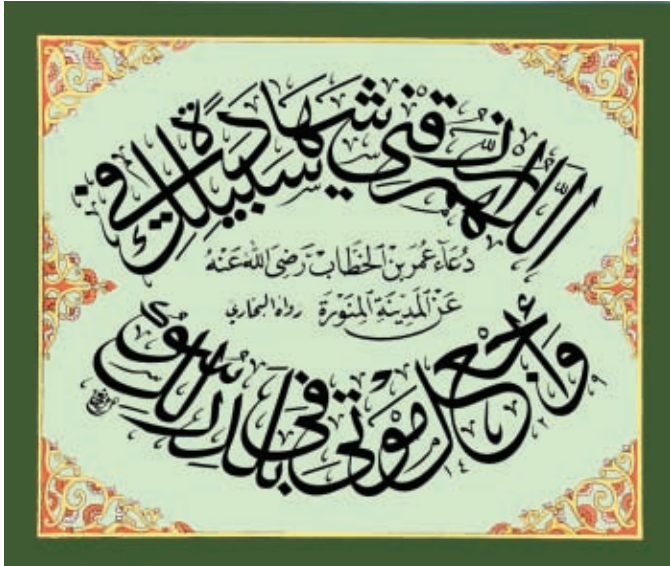 اللَّهُمَّ ارْزُقْنِي شَهَادَةً فِي سَبِيلِكَ
دُعَاءُ عُمَرَ بْنِ الْخَطَّابْ رَضِيَ اللهُ عَنْهُ
عَنْ الْمَدِينَةِ الْمُنَوَّرَةِ رواه البخاري
وَاجْعَلْ مَوْتِي فِي بَلَدِ رَسُولِكَ